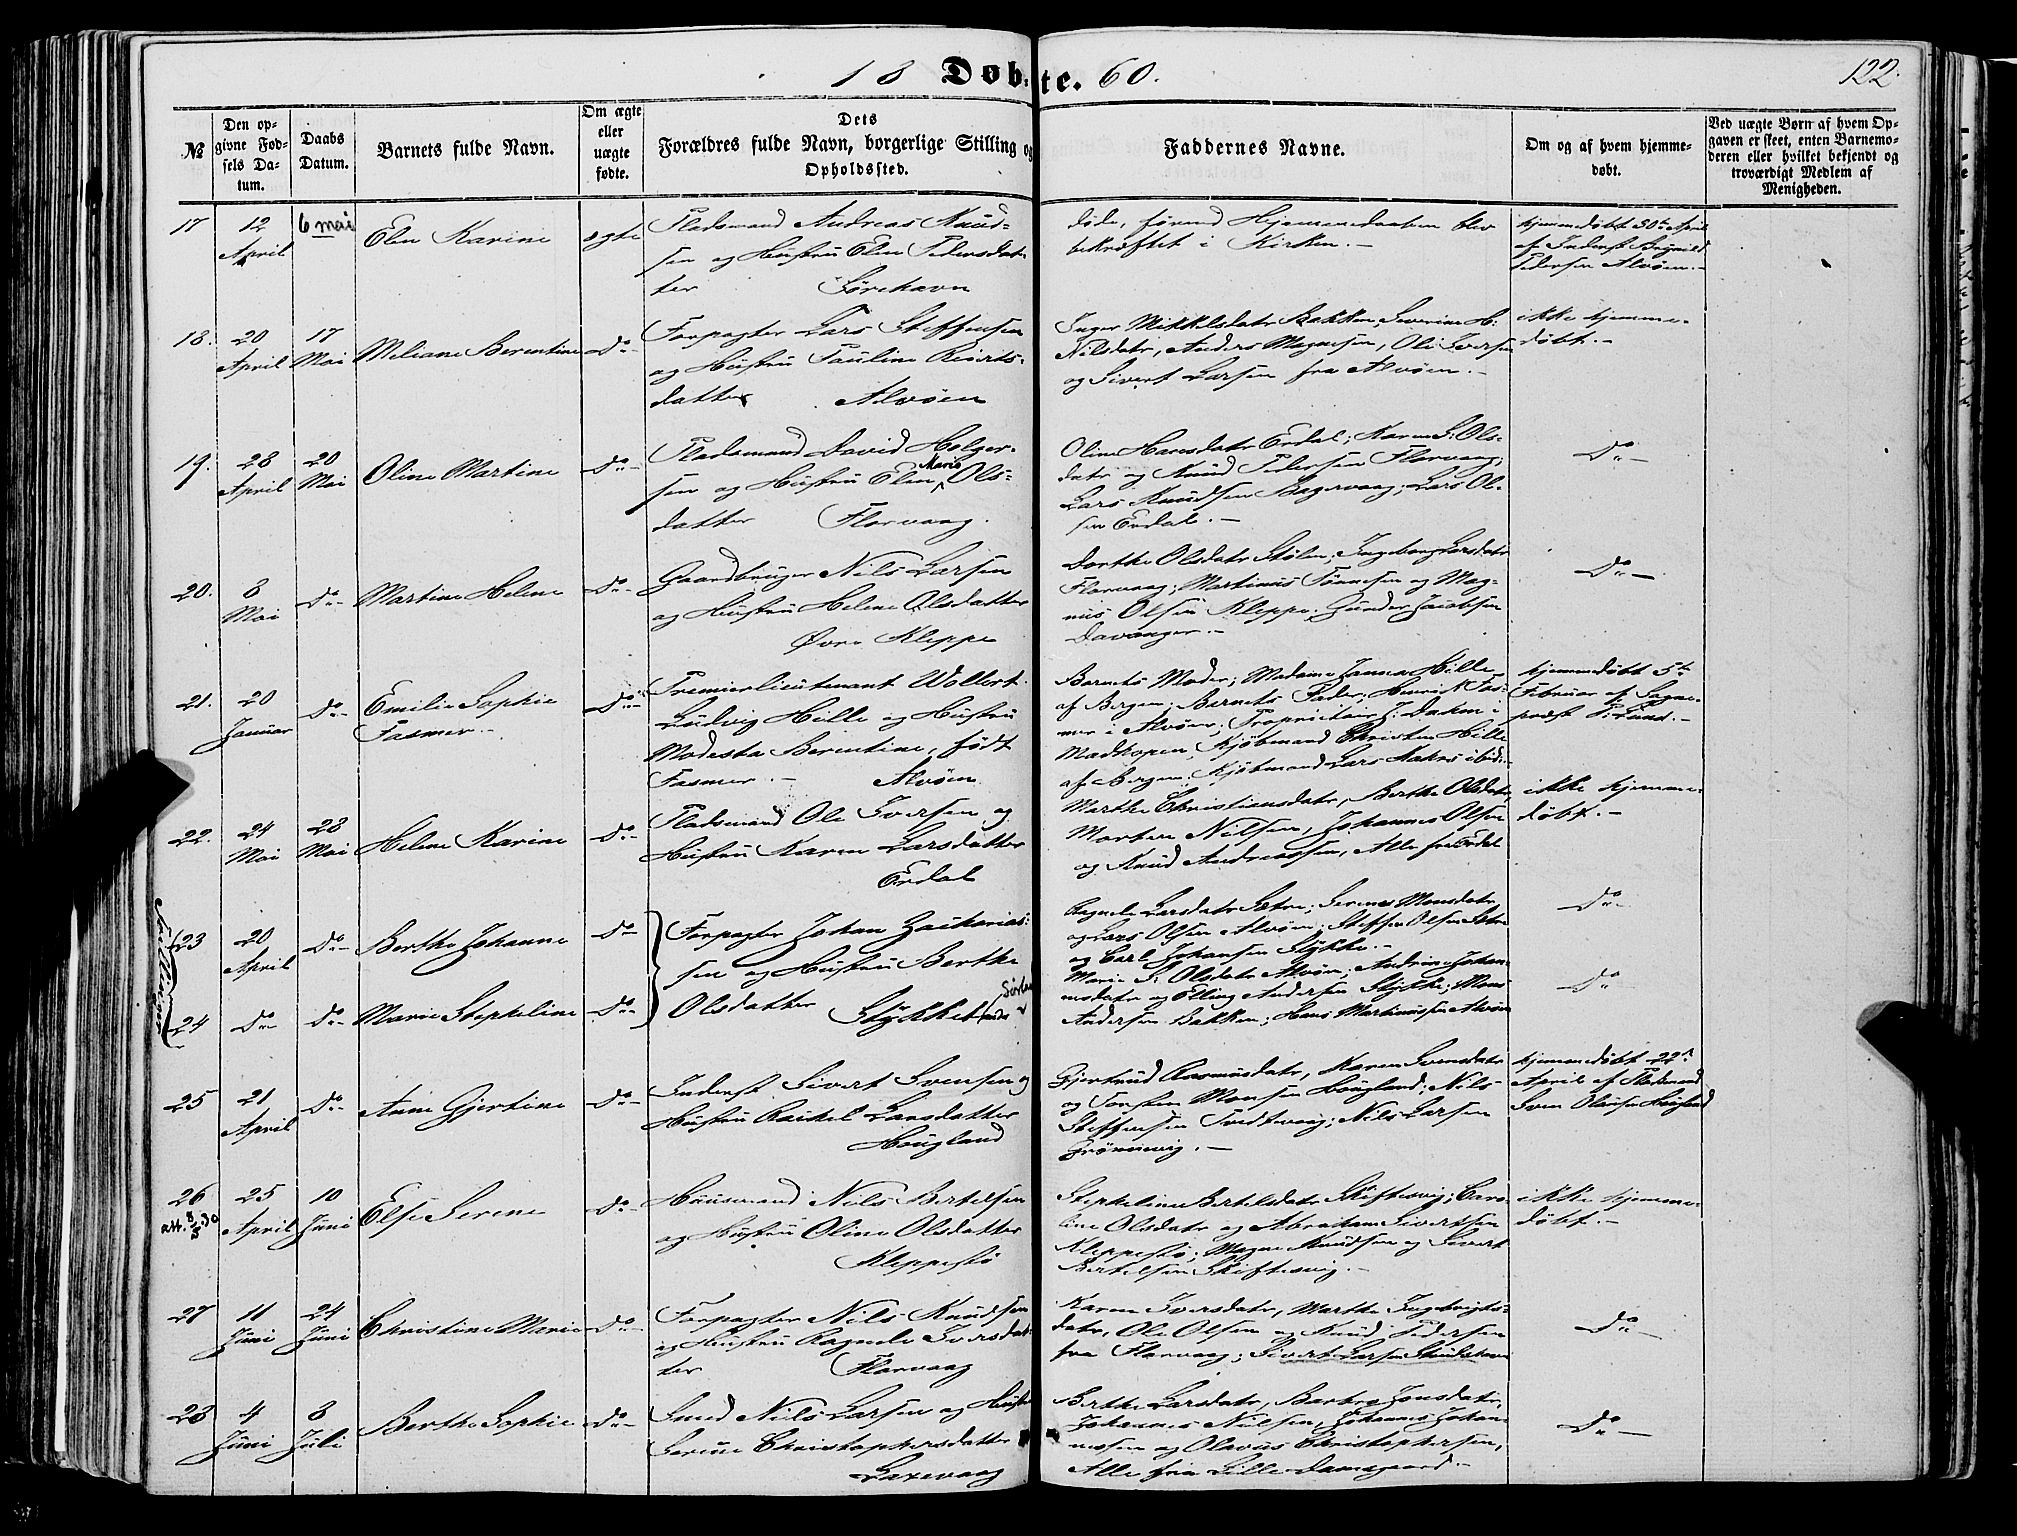 18 Døbte. 60.
122.
№
Den opgivne Fødsels Datum.
Daabs Datum.
Barnets fulde Navn.
Om ægte eller uægte fødte.
Dets Forældres fulde Navn, borgerlige Stilling og Opholdssted.
Faddernes Navne.
Om og af hvem hjemmedøbt.
Ved uægte Børn af hvem Opgaven er skeet, enten Barnemoderen eller hvilket bekjendt og troværdigt Medlem af Menigheden.
17
12 April
6 mai
Elen Karine
ægte
Pladsmand Andreas Knud-
sen og Hustru Elen Pedersdat-
ter Sörehavn
døde, førend Hjemmedaaben blev
bekræftet i Kirken.-
hjemmedöbt 30te April
af Inderst Brynild
Pedersen Alvöen.-
18.
20 April
17 Mai
Meliane Berentine
Do-
Forpagter Lars Steffensen
og Hustru Pauline Siverts-
datter Alvöen
Inger Mikkelsdatr Bakken, Severine H:
Nilsdatr, Anders Magnesen, Ole Iversen
og Sivert Larsen fra Alvöen.-
ikke hjemme-
döbt.-
19.
28 April
20 Mai
Oline Martine
Do-
Pladsmand David Holger-
sen og Hustru Elen Marie Ols-
datter Florvaag.
Oline Hansdatr Erdal; Karen S: Ols-
datr og Knud Pedersen Florvaag;
Lars Knudsen Bagervaag; Lars Ol-
sen Erdal.-
Do-
20.
8 Mai
Do-
Martine Helene
Do-
Gaardbruger Nils Larsen
og Hustru Helene Olsdatter
Øvre Kleppe
Dorthe Olsdatr Stölen; Ingeborg Larsdatr
Florvaag; Martinus Tönnesen og Mag-
nus Olsen Kleppe; Gunder Jacobsen
Davanger.-
Do-
21.
20 Januar
Do-
Emilie Sophie
Fasmer.-
Do-
Premierlieutenant Wollert
Ludvig Hille og Hustru
Modesta Berentine, födt
Fasmer.- Alvöen
Barnets Moder; Madame Janna Hille
af Bergen; Barnets Fader; Henrik Fas-
mer i Alvöen; Proprietair J: Dahm i
Madkopen; Kjöbmand Christen Hille
af Bergen; Kjöbmand Lars Aakre ibid:-
hjemmedöbt 5te
Februar af Sogne-
præst P: Lund.-
22.
24 Mai
28 Mai
Helene Karine
Do-
Pladsmand Ole Iversen og
Hustru Karen Larsdatter
Erdal
Marthe Christiansdatr, Berthe Olsdatr,
Morten Nilsen, Johannes Olsen
og Knud Andreassen, Alle fra Erdal
ikke hjemme-
döbt.-
23
20 April
Do-
Berthe Johanne
Do-
Forpagter Johan Zacharias-
sen og Hustru Berthe
Olsdatter Stykket
Ragnele Larsdatr Sætre; Serines Monsdatr
og Lars Olsen Alvöen; Steffen Olsen Sætre
og Carl Johansen Stykke.-
Do-
24
Do-
Do-
Marie Stepheline
Do-
Marie S: Olsdatr Alvöen; Andrine Johan-
nesdatr og Elling Andersen Stykke; Mons
Andersen Bakken; Hans Martinussen Alvöen
Do-
25
21 April
Do-
Anne Gjertine
Do-
Inderst Sivert Svensen og
Hustru Rachel Larsdatter
Hougland
Gjertrud Rasmusdatr, Karen Svensdatr
og Torsten Monsen Hougland; Nils
Steffensen Tvedtevaag; Nils Larsen
Grönnevig.-
hjemmedöbt 22d
April af Pladsmand
Sven Olausen Hougland
26
att. 8/5 30
25 April
10 Juni
Else Serene
Do-
Huusmand Nils Bertelsen
og Hustru Oline Olsdatter
Kleppestö
Stepheline Bertelsdatr Skiftesvig; Caro-
line Olsdatr og Abraham Sivertsen
Kleppestö; Magne Knudsen og Sivert
Bertelsen Skiftesvig.-
ikke hjemme-
döbt.-
27
11 Juni
24 Juni
Christine Marie
Do-
Forpagter Nils Knudsen
og Hustru Ragnele Iversdat-
ter Florvaag
Karen Iversdatr, Marthe Ingebrigts-
datr, Ole Olsen og Knud Pedersen
fra Florvaag; Sivert Larsen
Do-
28
4 Juni
8 Juli
Berthe Sophie
Do-
Smed Nils Larsen og Hustru
Serine Christophersdatter
Laxevaag
Berthe Larsdatr, Barbro Jonsdatr,
Johannes Nilsen, Johannes Johan-
nesen og Olavus Christophersen,
Alle fra Lille Damsgaard.-
Do-